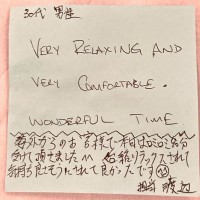 30代 男性
VERY RELAXING AND
VERY COMFORTABLE.
WONDERFUL TIME.
海外からのお客様で一本目は
受けて頂きました リラックスされて
気持ち良さそうにされて良かったです
担当